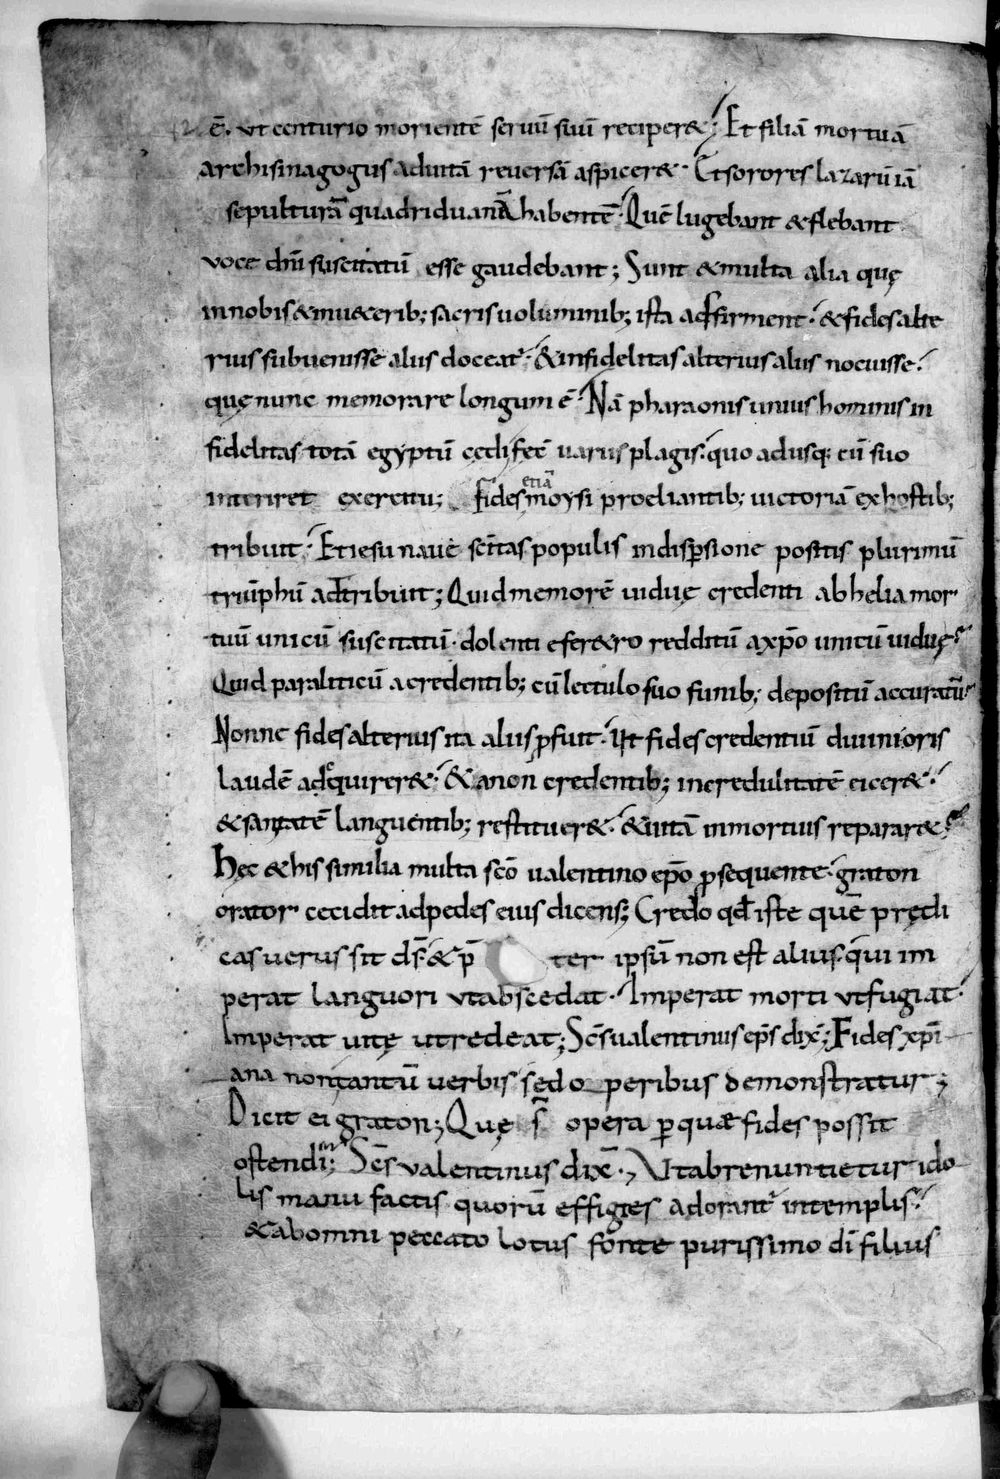 ē. ut centurio morientē seruū suū reciper&; Et filiā mortuā
archisinagogus aduitā reuersā aspicer&. Et sorores lazarū iā
sepulturā quadriduanā habentē. Quē lugebant & flebant
uoce dn̄i suscitatū esse gaudebant; Sunt & multa alia quę
innobis & inu&erib; sacris uoluminib; ista adfirment. & fides alte
rius subuenisse aliis doceat. & infidelitas alterius aliis nocuisse.
quę nunc memorare longum ē. Nā pharaonis unius hominis in
fidelitas totā egyptū uariis plagis. quo adusq; cū suo
interiret exercitu; Fides etiā moysi proeliantib; uictoriā ex hostib;
tribuit. Et iesu naue sc̄itas populis indisp̄sione positis plurimū
triūphū adtribuit; Quid memorē uiduę credenti ab helia mor
tuū unicū suscitatū. dolenti efer&ro redditū a xp̄o unicū uiduę.
Quid paraliticū a credentib; cū lectulo suo funib; depositū accuratū.
Nonne fides alterius ita aliis p̄fuit. Ut fides credentiū diuinioris
laudē adquirer&. & a non credentib; incredulitatē eicer&.
& sanitatē languentib; restituer&. & uitā inmortuis reparar&.
Hęc & his similia multa sc̄o ualentino ep̄o p̄sequente. graton
orator cecidit adpedes eius dicens; Credo qđ iste quē prędi
cas uerus sit d̄s. & p̄ ter ipsū non est alius. qui im
perat languori ut abscedat. Imperat morti ut fugiat.
Imperat uitę ut redeat; Sc̄s ualentinus ep̄s dix̄; Fides xp̄i
ana non tantū uerbis sed o peribus demonstratur;
Dicit ei graton; Quę s̄ opera p̄ quae fides possit
ostendi; Sc̄s ualentinus dix̄; Ut abrenuntietur ido
lis manu factis quorū effigies adorant̄ in templis.
& ab omni peccato lotus fonte purissimo dī filius